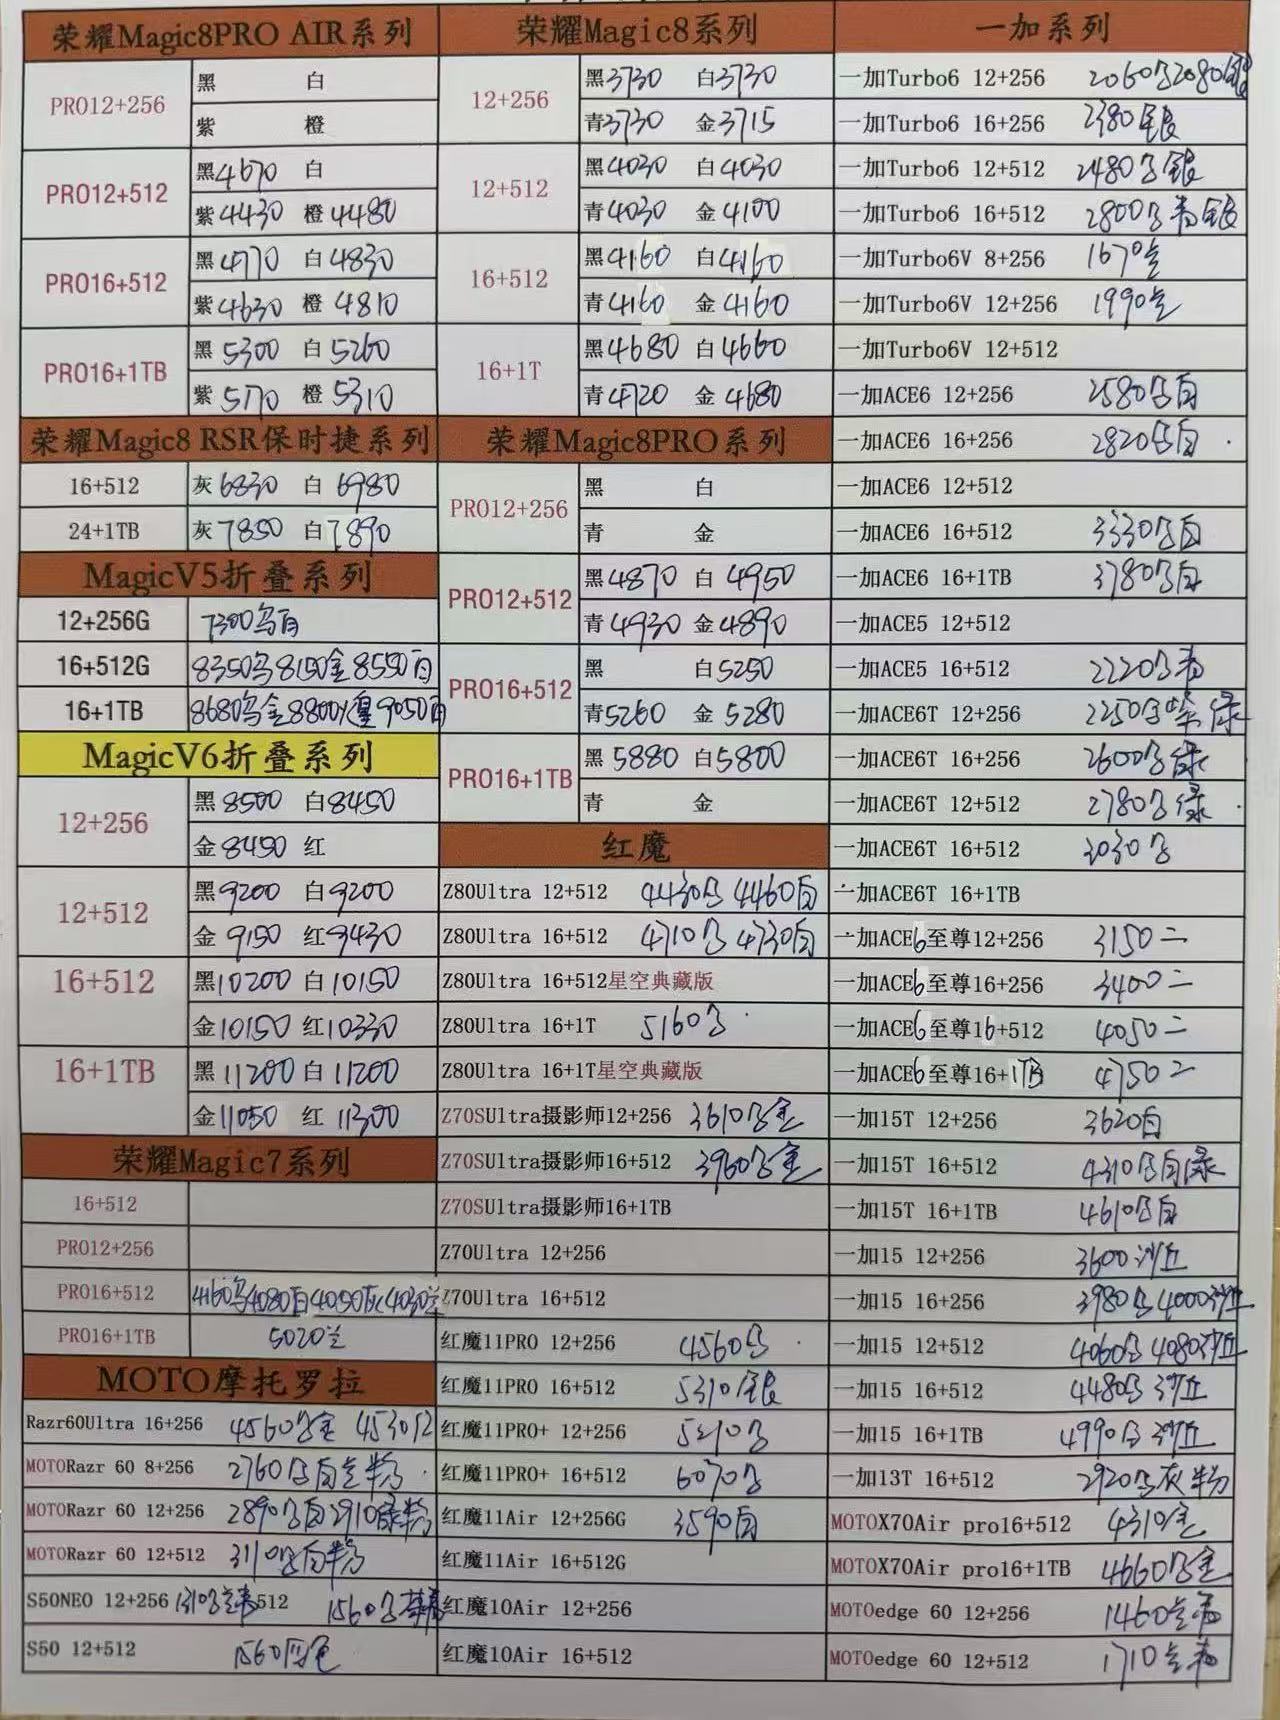 荣耀Magic8PRO AIR系列
PRO12+256 黑 白
紫 橙
PRO12+512 黑4670 白
紫4430 橙4480
PRO16+512 黑4770 白4830
紫4630 橙4810
PRO16+1TB 黑5300 白5260
紫5170 橙5310
荣耀Magic8 RSR保时捷系列
16+512 灰6830 白6980
24+1TB 灰7850 白7890
MagicV5折叠系列
12+256G 7300鸟白
16+512G 8350鸟8150金8550白
16+1TB 8680鸟金8800 9050白
MagicV6折叠系列
12+256 黑8500 白8450
金8450 红
12+512 黑9200 白9200
金9150 红9430
16+512 黑10200 白10150
金10150 红10330
16+1TB 黑11200 白11200
金11050 红11300
荣耀Magic7系列
16+512
PRO12+256
PRO16+512 4160鸟4080白4050灰4030兰
PRO16+1TB 5020兰
MOTO摩托罗拉
Razr60Ultra 16+256 4560 金 4530红
MOTORazr 60 8+256 2760 白 粉
MOTORazr 60 12+256 2890 白2910绿粉
MOTORazr 60 12+512 3110 白粉
S50NEO 12+256 1310 512 1560
S50 12+512 1560四色
荣耀Magic8系列
12+256 黑3730 白3730
青3730 金3715
12+512 黑4030 白4030
青4030 金4100
16+512 黑4160 白4160
青4160 金4160
16+1T 黑4680 白4660
青4720 金4680
荣耀Magic8PRO系列
PRO12+256 黑 白
青 金
PRO12+512 黑4870 白4950
青4930 金4890
PRO16+512 黑 白5250
青5260 金5280
PRO16+1TB 黑5880 白5800
青 金
红魔
Z80Ultra 12+512 4430 4460白
Z80Ultra 16+512 4710 4730白
Z80Ultra 16+512星空典藏版
Z80Ultra 16+1T 5160
Z80Ultra 16+1T星空典藏版
Z70SUltra摄影师12+256 3610 金
Z70SUltra摄影师16+512 3960 金
Z70SUltra摄影师16+1TB
Z70Ultra 12+256
Z70Ultra 16+512
红魔11PRO 12+256 4560
红魔11PRO 16+512 5310银
红魔11PRO+ 12+256 5210
红魔11PRO+ 16+512 6070
红魔11Air 12+256G 3590白
红魔11Air 16+512G
红魔10Air 12+256
红魔10Air 16+512
一加系列
一加Turbo6 12+256 2060 2080银
一加Turbo6 16+256 2380银
一加Turbo6 12+512 2480 银
一加Turbo6 16+512 2800 青银
一加Turbo6V 8+256 1670
一加Turbo6V 12+256 1990
一加Turbo6V 12+512
一加ACE6 12+256 2580 白
一加ACE6 16+256 2820 白
一加ACE6 12+512
一加ACE6 16+512 3330 白
一加ACE6 16+1TB 3780 白
一加ACE5 12+512
一加ACE5 16+512 2220 青
一加ACE6T 12+256 2250 紫绿
一加ACE6T 16+256 2600 绿
一加ACE6T 12+512 2780 绿
一加ACE6T 16+512 3030
一加ACE6T 16+1TB
一加ACE6至尊12+256 3150二
一加ACE6至尊16+256 3400二
一加ACE6至尊16+512 4050二
一加ACE6至尊16+1TB 4750二
一加15T 12+256 3620白
一加15T 16+512 4310 白绿
一加15T 16+1TB 4610 白
一加15 12+256 3600沙丘
一加15 16+256 3980 4000沙丘
一加15 12+512 4060 4080沙丘
一加15 16+512 4480 沙丘
一加15 16+1TB 4990 沙丘
一加13T 16+512 2920 灰粉
MOTOX70Air pro16+512 4310金
MOTOX70Air pro16+1TB 4660 金
MOTOedge 60 12+256 1460 青
MOTOedge 60 12+512 1710 青